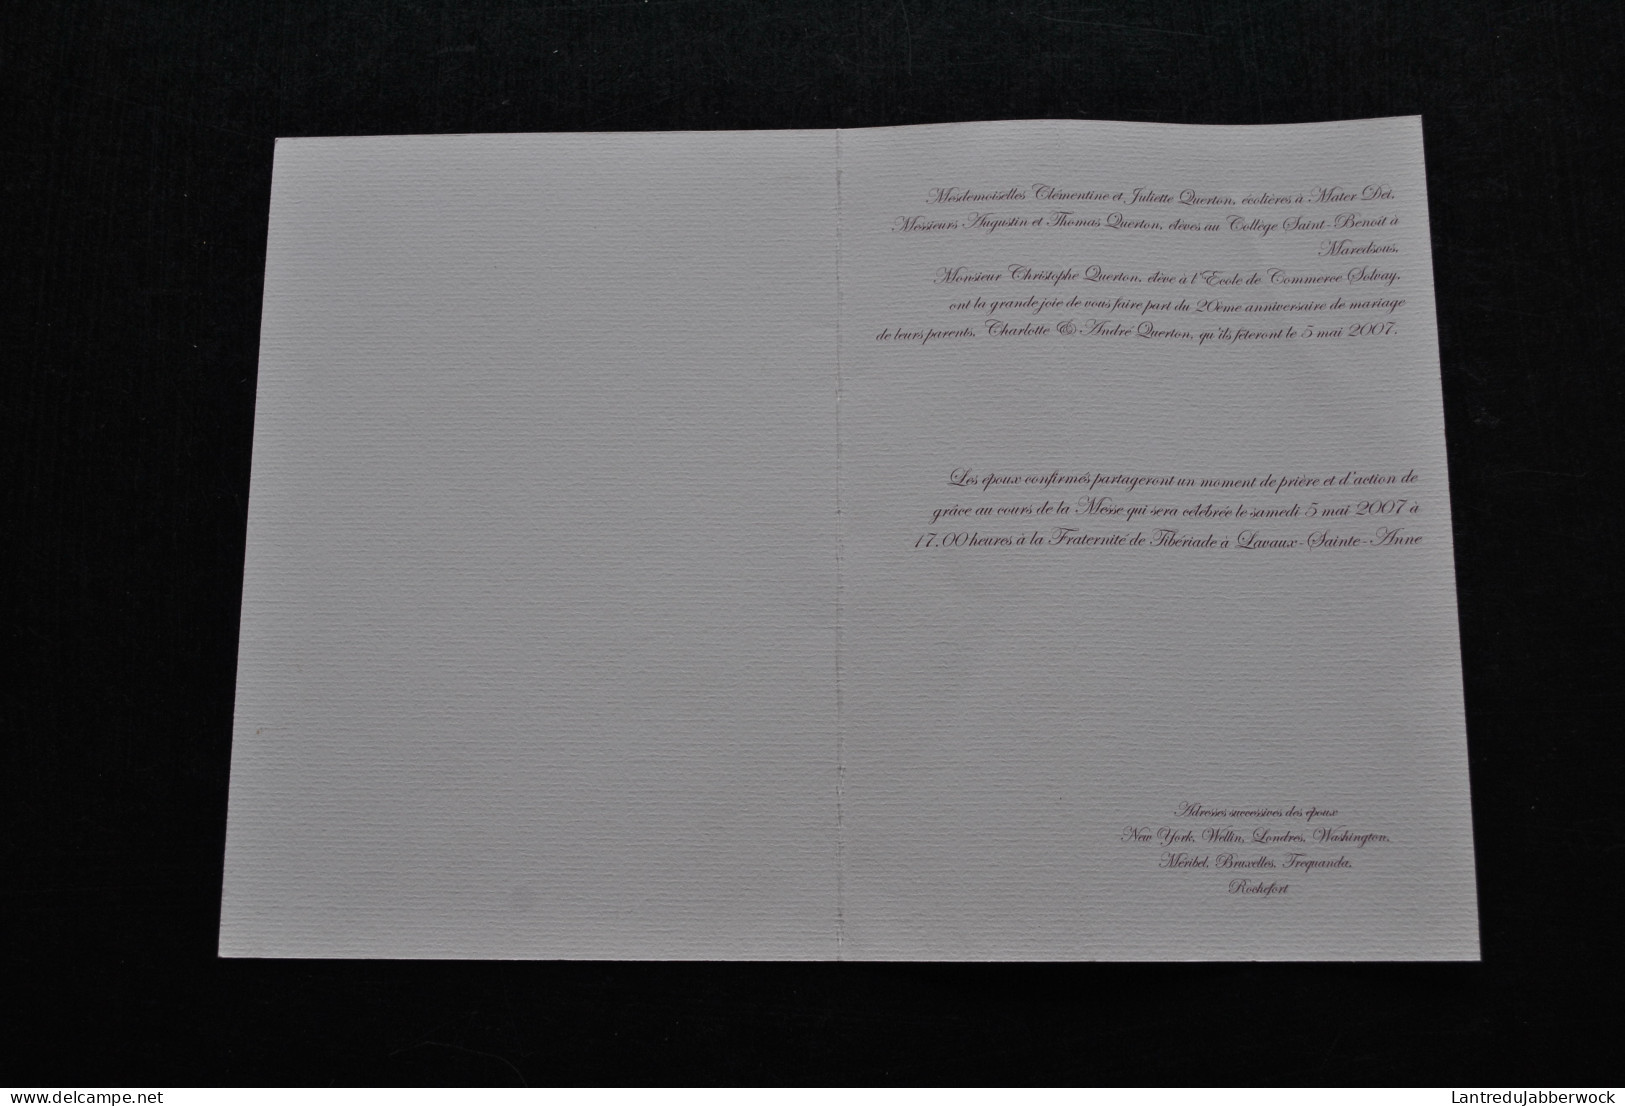 Mesdemoiselles Clémentine et Juliette Querton, écolières à Mater Dei,
Messieurs Augustin et Thomas Querton, élèves au Collège Saint-Benoît à
Maredsous,
Monsieur Christophe Querton, élève à l'Ecole de Commerce Solvay,
ont la grande joie de vous faire part du 20ème anniversaire de mariage
de leurs parents, Charlotte & André Querton, qu'ils fêteront le 5 mai 2007.
Les époux confirmés partageront un moment de prière et d'action de
grâce au cours de la Messe qui sera célébrée le samedi 5 mai 2007 à
17.00 heures à la Fraternité de Tibériade à Lavaux-Sainte-Anne
Adresses successives des époux
New York, Wellin, Londres, Washington,
Méribel, Bruxelles, Trequanda,
Rochefort
delcampe.net
LantreduJabberwock